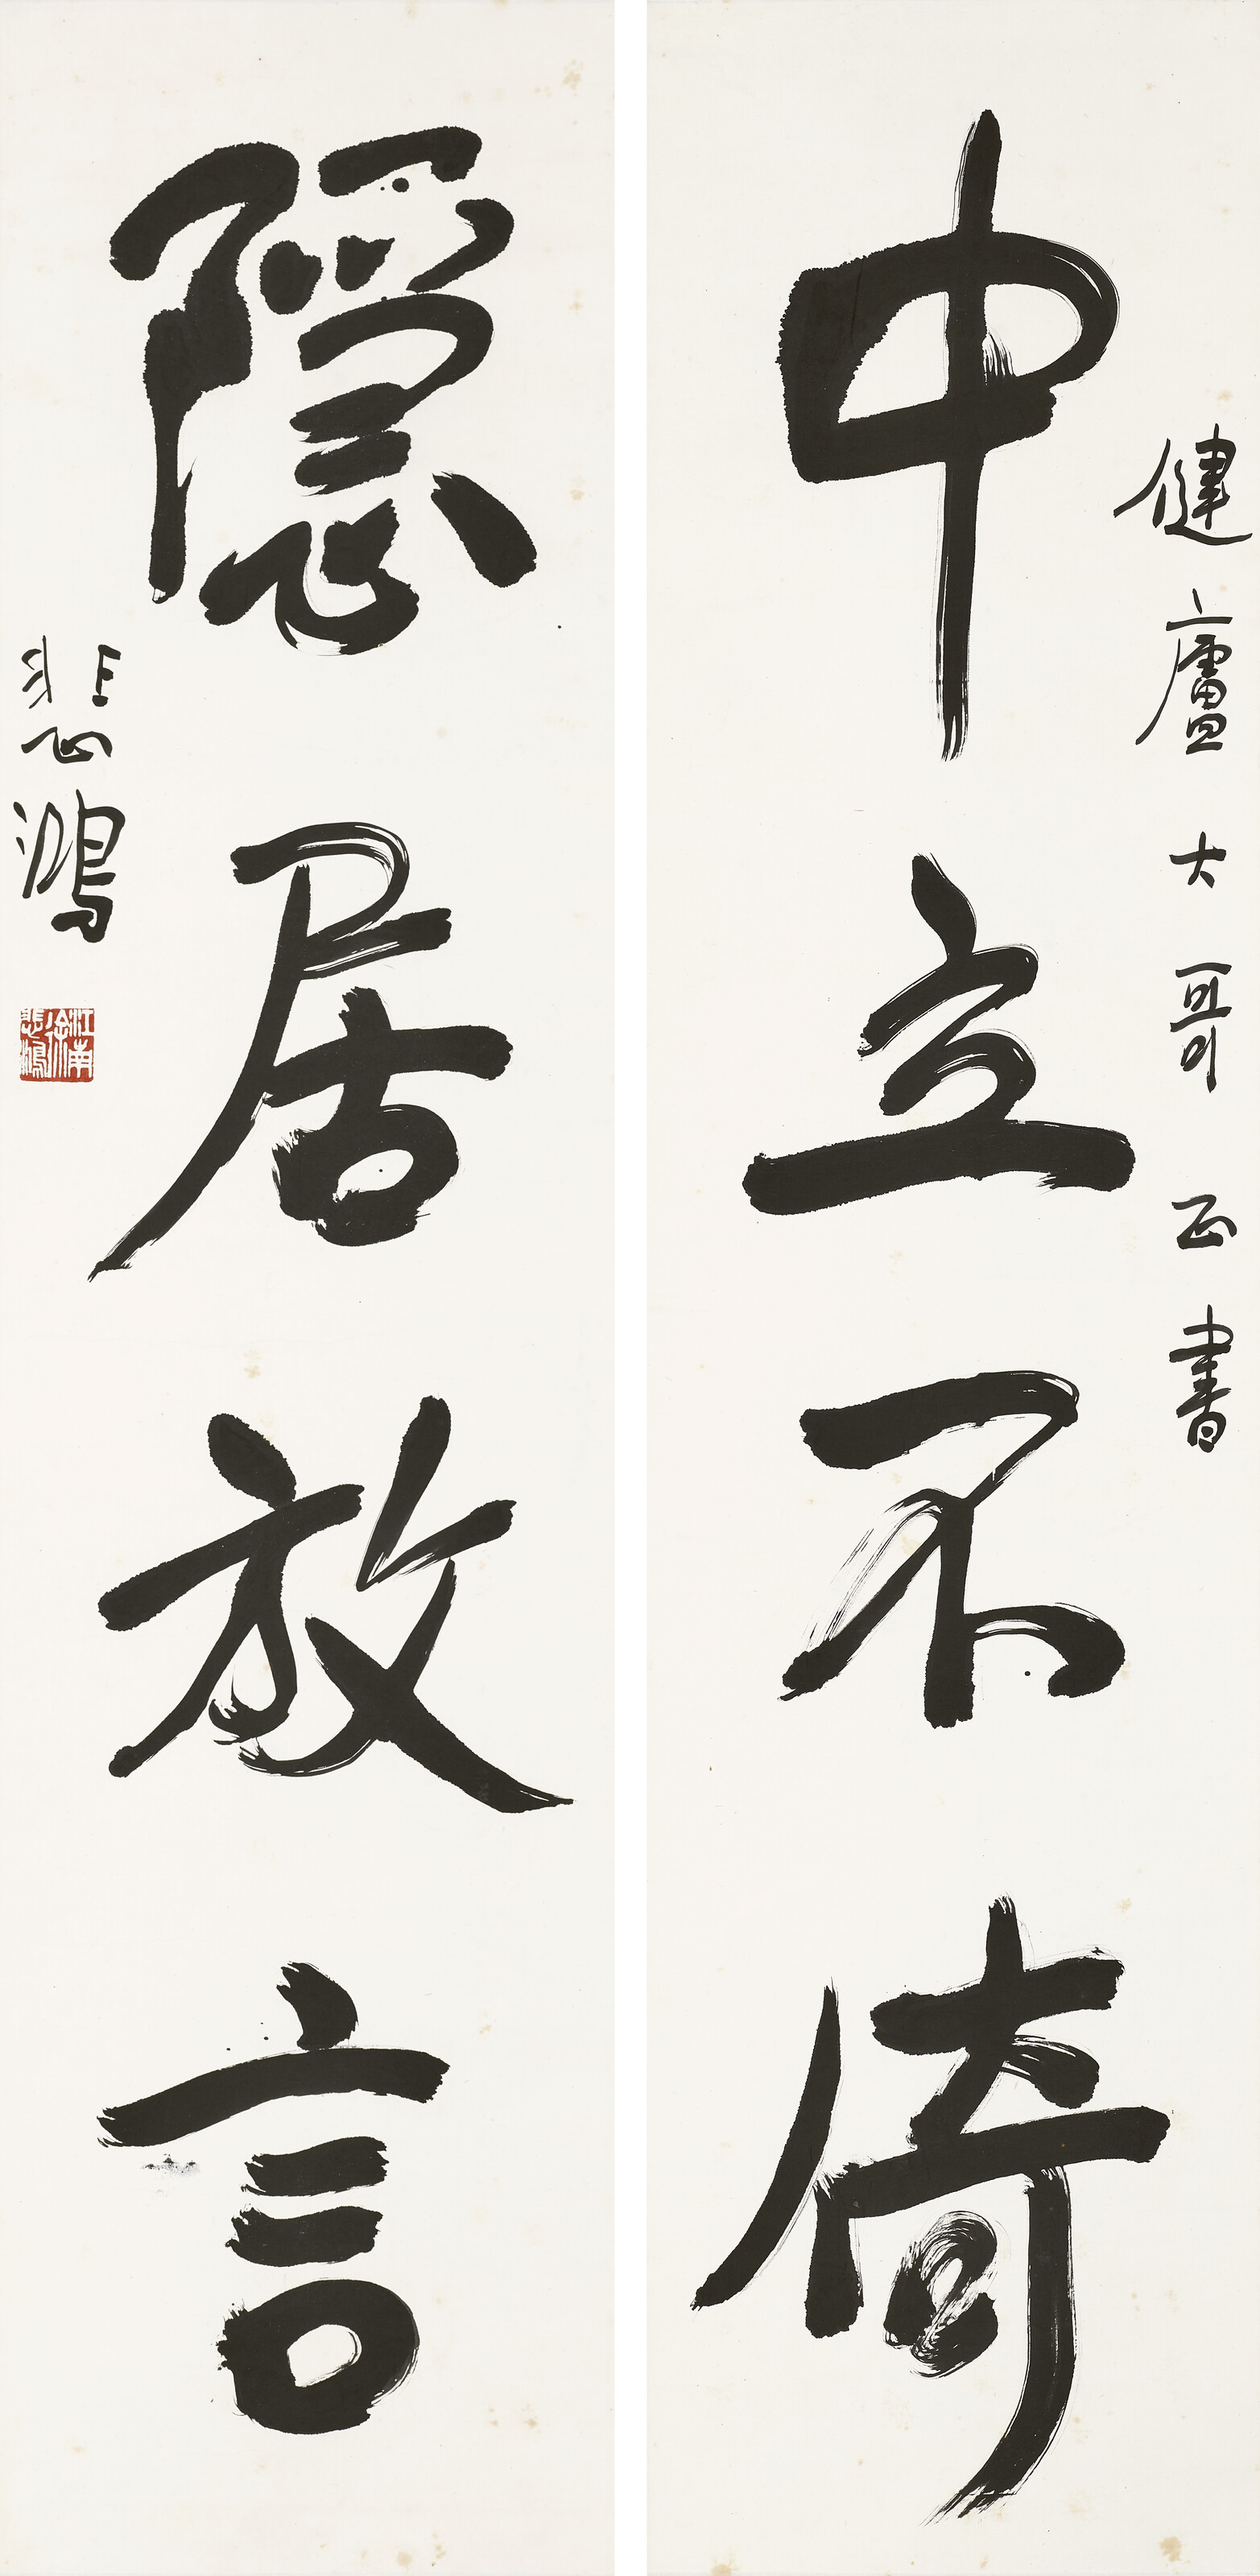 健廬大哥正書
中立不倚
隱居放言
悲鴻
江南徐悲鴻